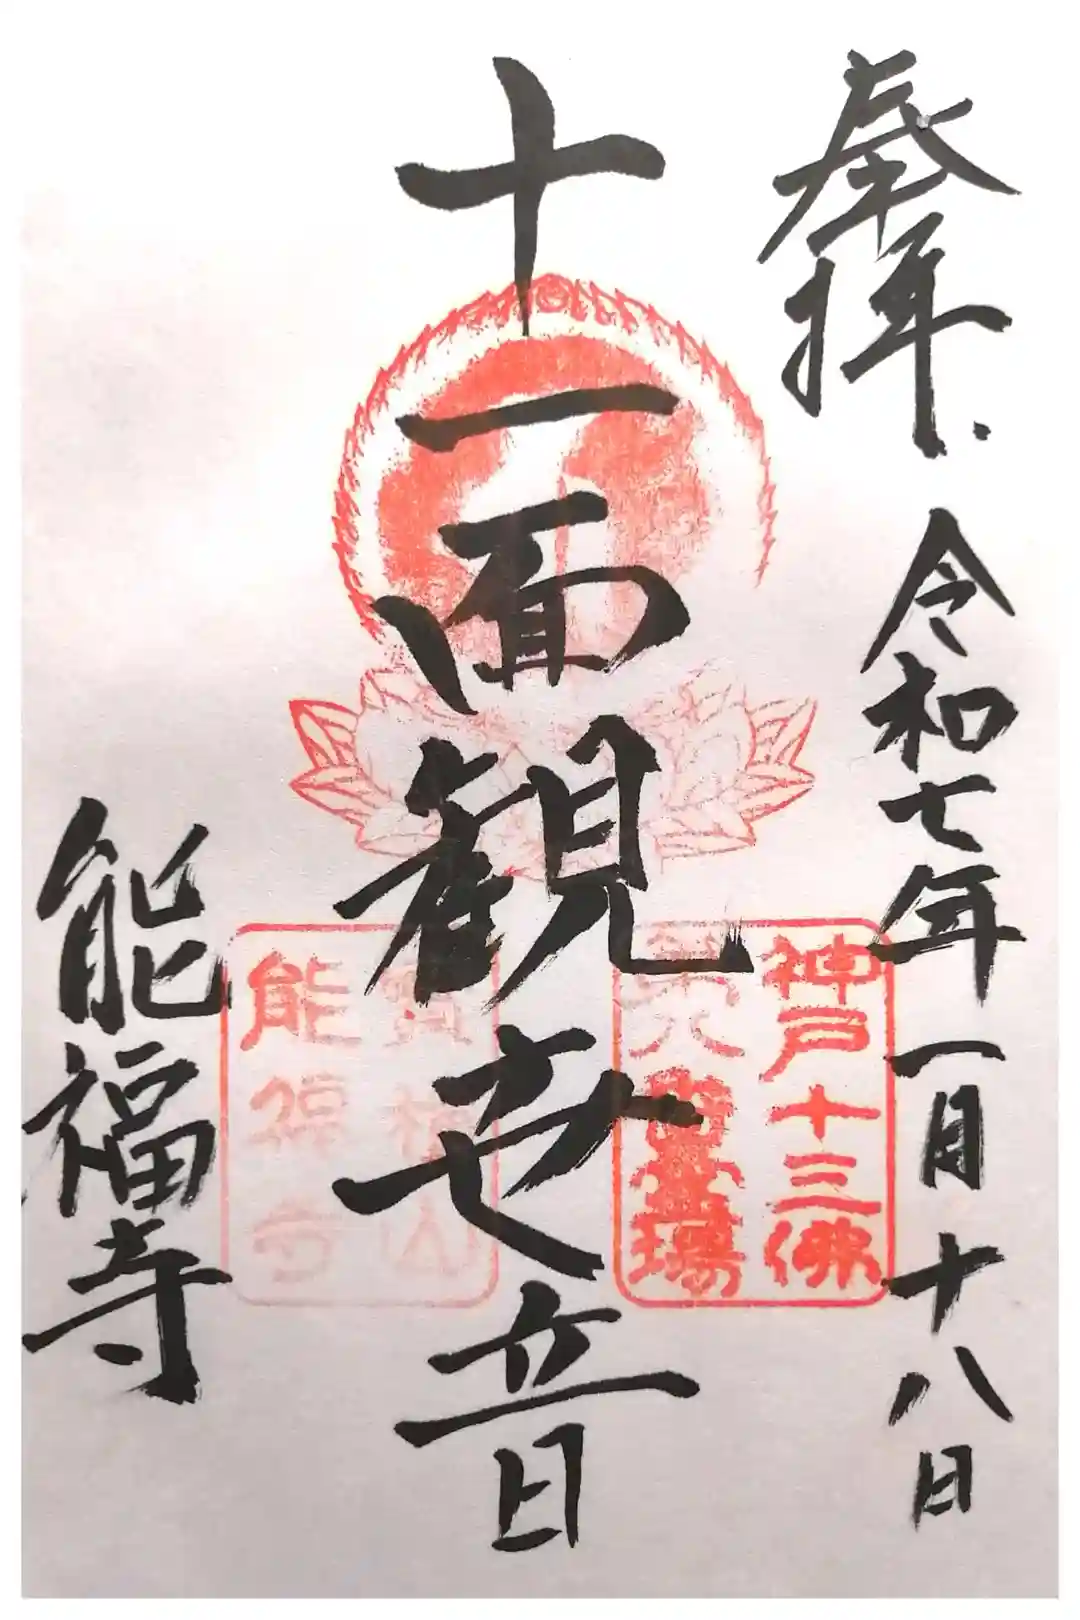 奉拝
令和七年一月十八日
十一面観世音
能福寺
神戸十三佛
第八番霊場
宝積山
能福寺